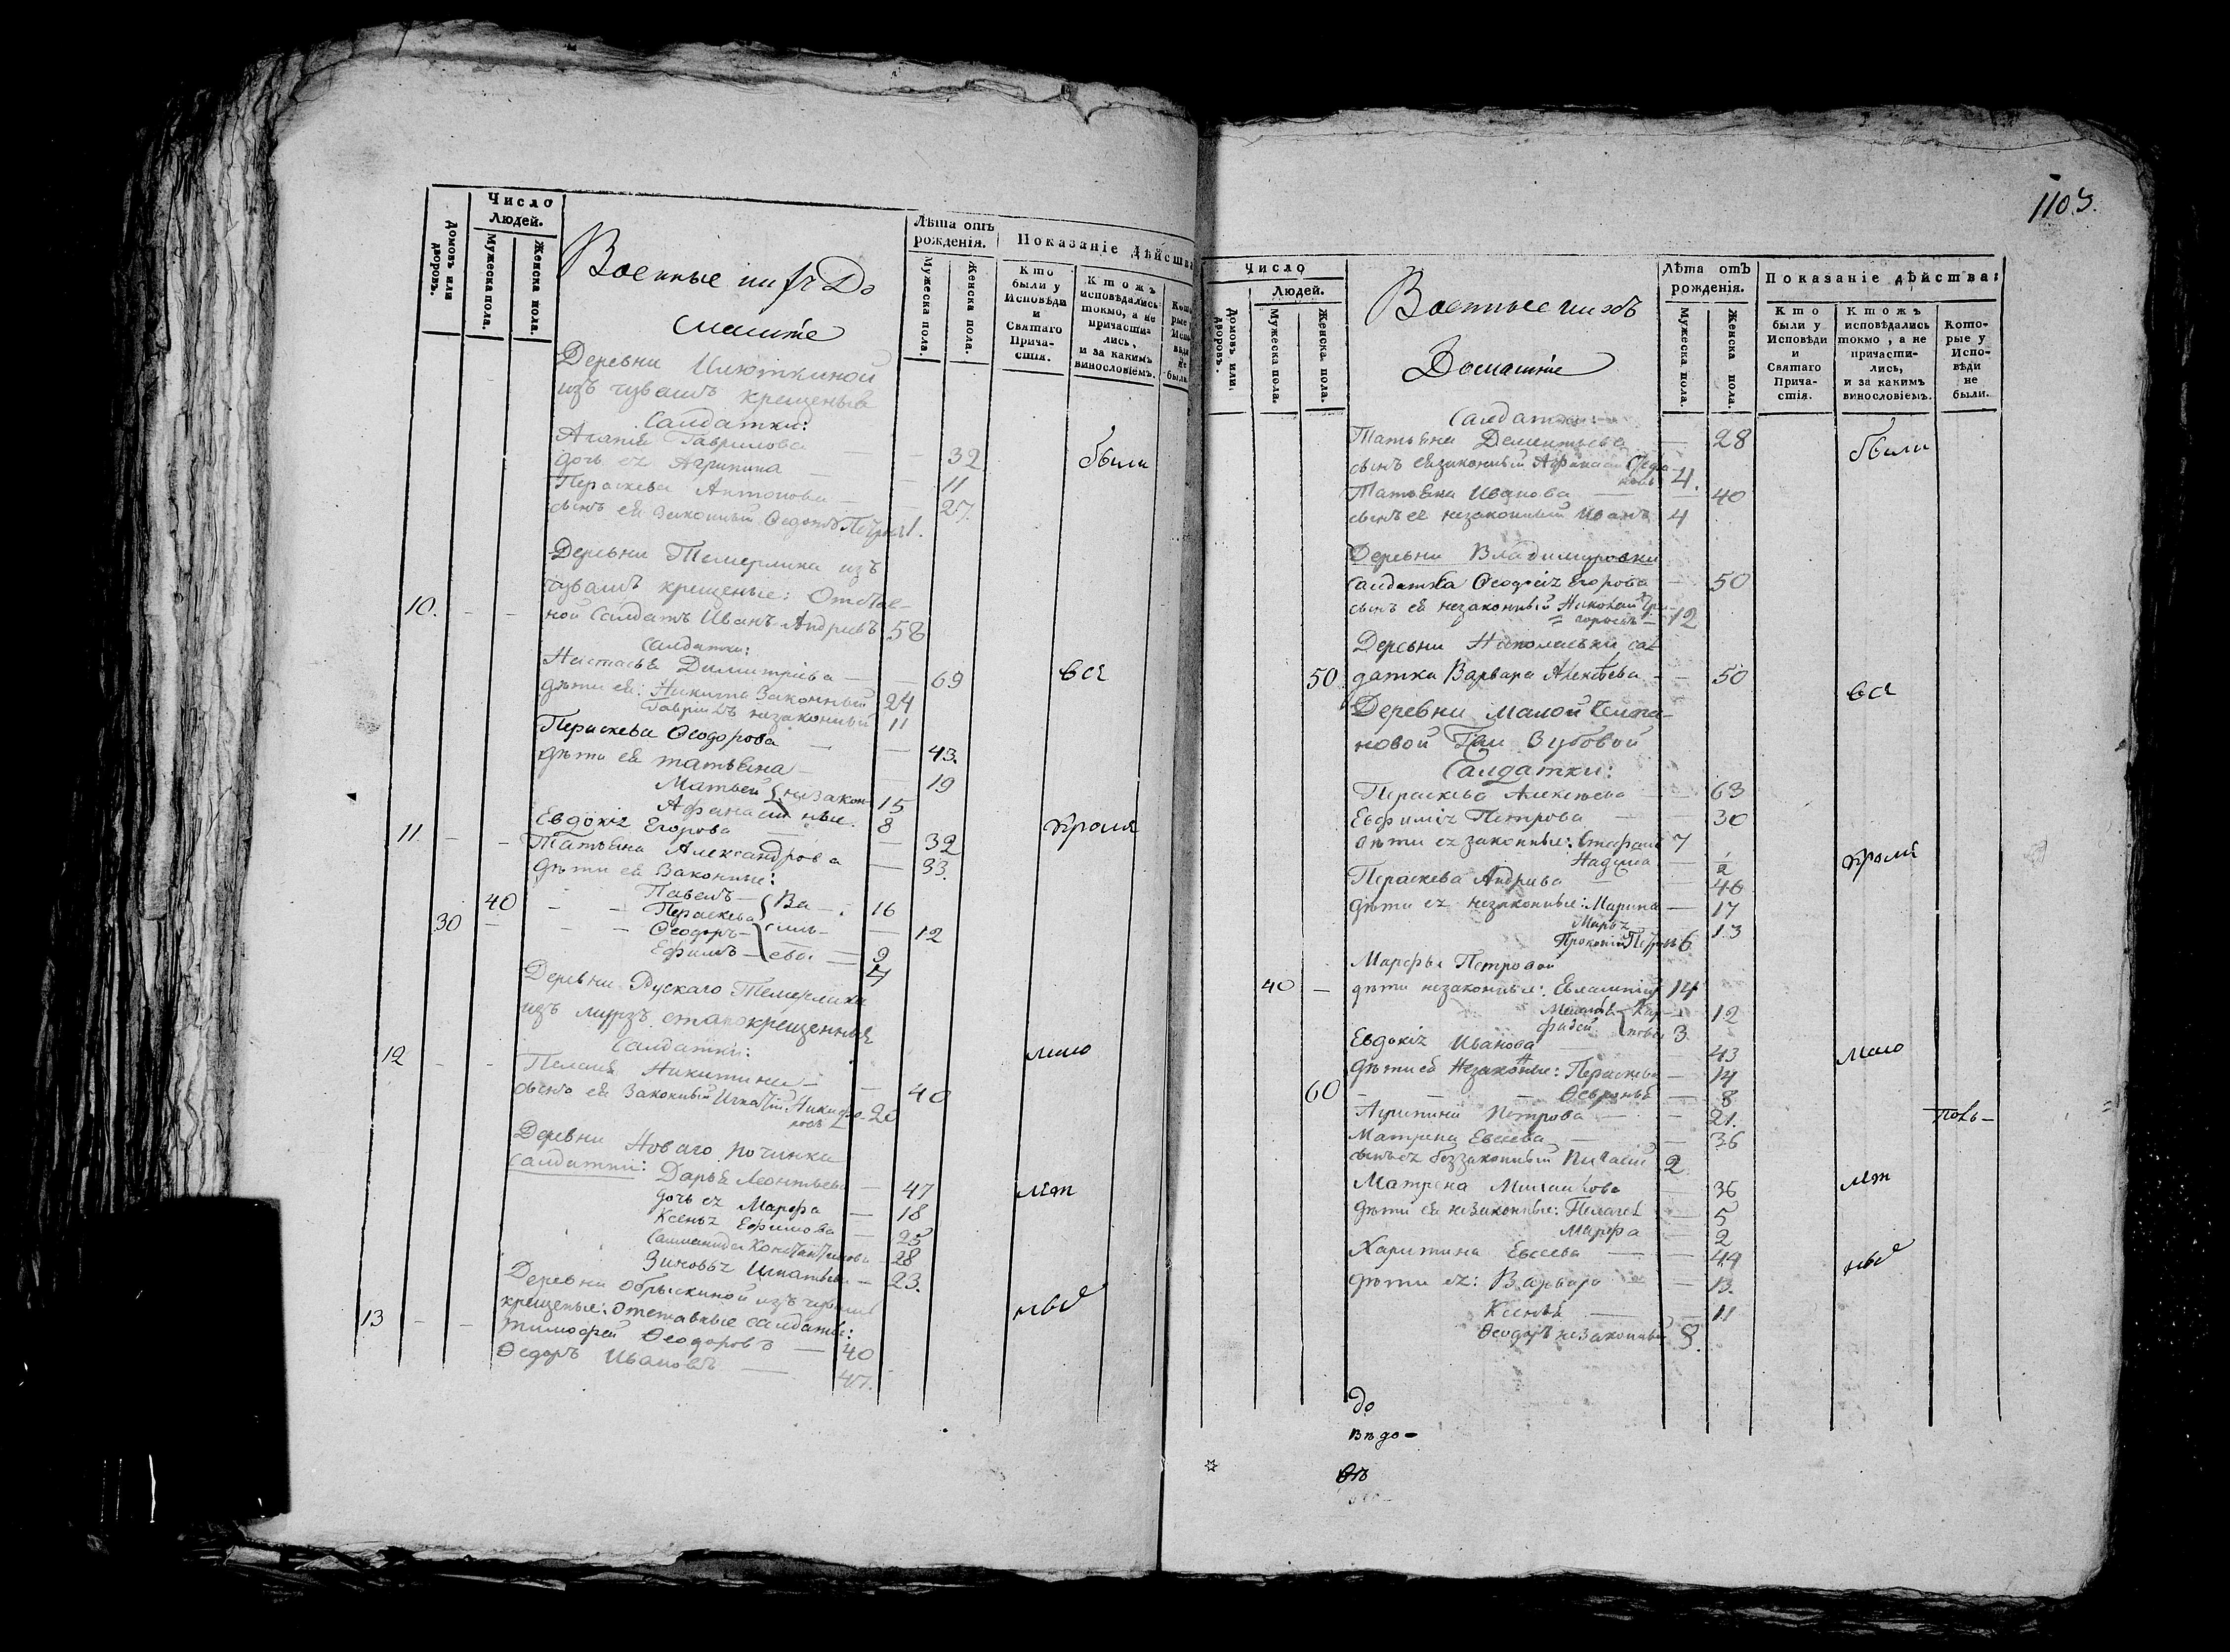 Число
Людей.
Домовъ или дворовъ.
Мужеска пола.
Женска пола.
Военные и их До
машніе
Лѣта отъ рожденія.
Мужеска пола.
Женска пола.
Показаніе дѣйства
Кто были у Исповѣди и Святаго Причастія.
Ктожъ исповѣдались токмо, а не причастились, и за какимъ винословіемъ.
Которые у Исповѣди не были.
Деревни
изъ чувашъ крещеныя
Салдатки:
Агафія Гаврилова — 32 были
дочь ея Агрипина — 11
Параскева Антонова — 27
сынъ ея законный Ѳедотъ 1.
Деревни Темерлика изъ
чувашъ крещеные: Отстав-
10. ной Салдатъ Иванъ Андреевъ 58
Салдатки:
Настасья Димитріева — 69 вся
дѣти ея: Никита Законный 24
Гаврилъ незаконный 11
Параскева Ѳеодорова — 43.
дѣти ея Татьяна — 19
Матвей незакон- 15
Афанасій ные. 8
11. Евдокія Егорова — 32 кромя
Татьяна Александрова — 33.
дѣти ея Законные:
40 Павелъ Ва- 16
30 Параскева 12
Ѳеодоръ силь- 9
Ефимъ ева 4
Деревни Рускаго Темерлика
изъ мурзъ старокрещенныя
Салдатки:
12 Пелагея Никитина — 40 мало
сынъ ея Законный Игнатій Никифо- 20
ровъ
Деревни Новаго починка
салдатки: Дарья Леонтьева — 47 лѣт
дочь ея Марфа — 18
Ксенья Ефимова — 25
Константинова — 28
Зиновья Игнатьева — 23.
Деревни Обрыскиной изъ чувашъ
13 крещеные: Отставные салдаты: ныхъ
Тимофей Ѳеодоровъ — 40
Ѳедоръ Ивановъ — 47.
1103.
Число
Людей.
Домовъ или дворовъ.
Мужеска пола.
Женска пола.
Военные и ихъ
Домашніе
Лѣта отъ рожденія.
Мужеска пола.
Женска пола.
Показаніе дѣйства:
Кто были у Исповѣди и Святаго Причастія.
Ктожъ исповѣдались токмо, а не причастились, и за какимъ винословіемъ.
Которые у Исповѣди не были.
Салдатки:
Татьяна Дементьева — 28 были
сынъ ея законный Афанасій 4.
Татьяна Иванова — 40
сынъ ея незаконный Иванъ 4
Деревни Владимировки
Салдатка Ѳеодосія Егорова — 50
сынъ ея незаконный Николай Гри- 12
горьевъ
Деревни сал-
50 датка Варвара Алексѣева — 50 вся
Деревни Малой
новой Зубовой
Салдатки:
Параскева Алексѣева — 63
Евфимія Петрова — 30
дѣти ея законные: Стефанъ 7
Надежда — 2 кромя
Параскева Андреева — 46
дѣти ея незаконные: Марина — 17
Марья 13
Прокопій Петровъ 6
Марфы Петровой
40 дѣти незаконные: Евлампій 14
12
3.
Евдокія Иванова — 43 мало
дѣти ея Незаконные: Параскева — 14
60 Ѳевронья 8
Агрипина Петрова — 21.
Матрена Евсеева — 36
сынъ ея беззаконный 2.
Матрена — 36 лѣт
дѣти ея незаконные: Пелагея — 5
Марфа — 2
Харитина Евсеева — 44 ныхъ
дѣти ея: Варвара — 13.
Ксенья — 11
Ѳеодоръ незаконный 8.
до
Въ до-